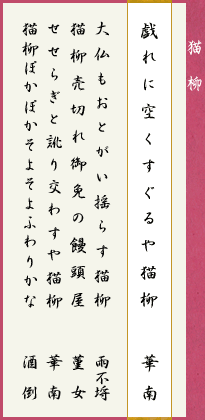 猫柳
戯れに空くすぐるや猫柳 華南
大仏もおとがい揺らす猫柳 雨不埒
猫柳売切れ御免の饅頭屋 菫女
せせらぎと訛り交わすや猫柳 華南
猫柳ぽかぽかそよそよふわりかな 酒倒